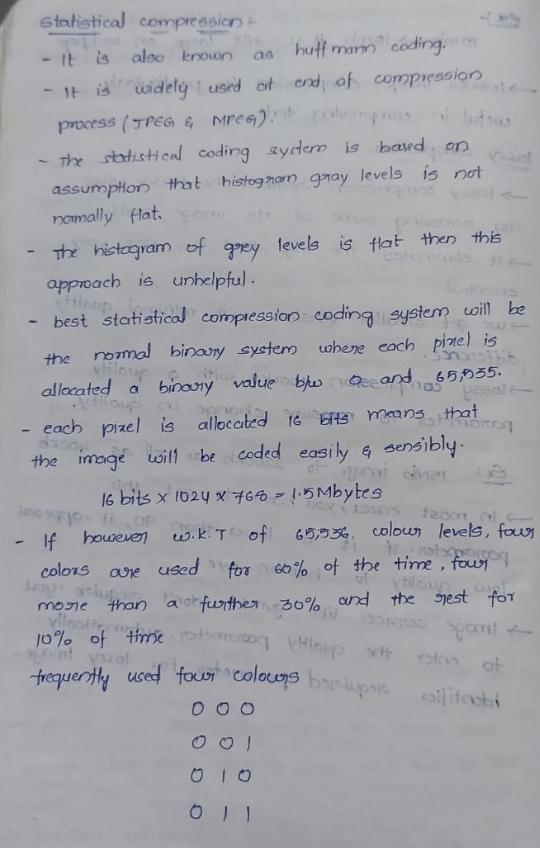 Statistical compression:-
- It is also known as huffmann coding.
- It is widely used at end of compression
process (JPEG & MPEG).
- The statistical coding system is based on
assumption that histogram gray levels is not
normally flat.
- the histogram of grey levels is flat then this
approach is unhelpful.
- best statistical compression coding system will be
the normal binary system where each pixel is
allocated a binary value b/w 0 and 65,535.
- each pixel is allocated 16 bits means that
the image will be coded easily & sensibly.
16 bits x 1024 x 768 = 1.5 Mbytes
- If however w.k.T of 65,536 colour levels, four
colors are used for 60% of the time, four
more than a further 30% and the rest for
10% of time
frequently used four colours
0 0 0
0 0 1
0 1 0
0 1 1